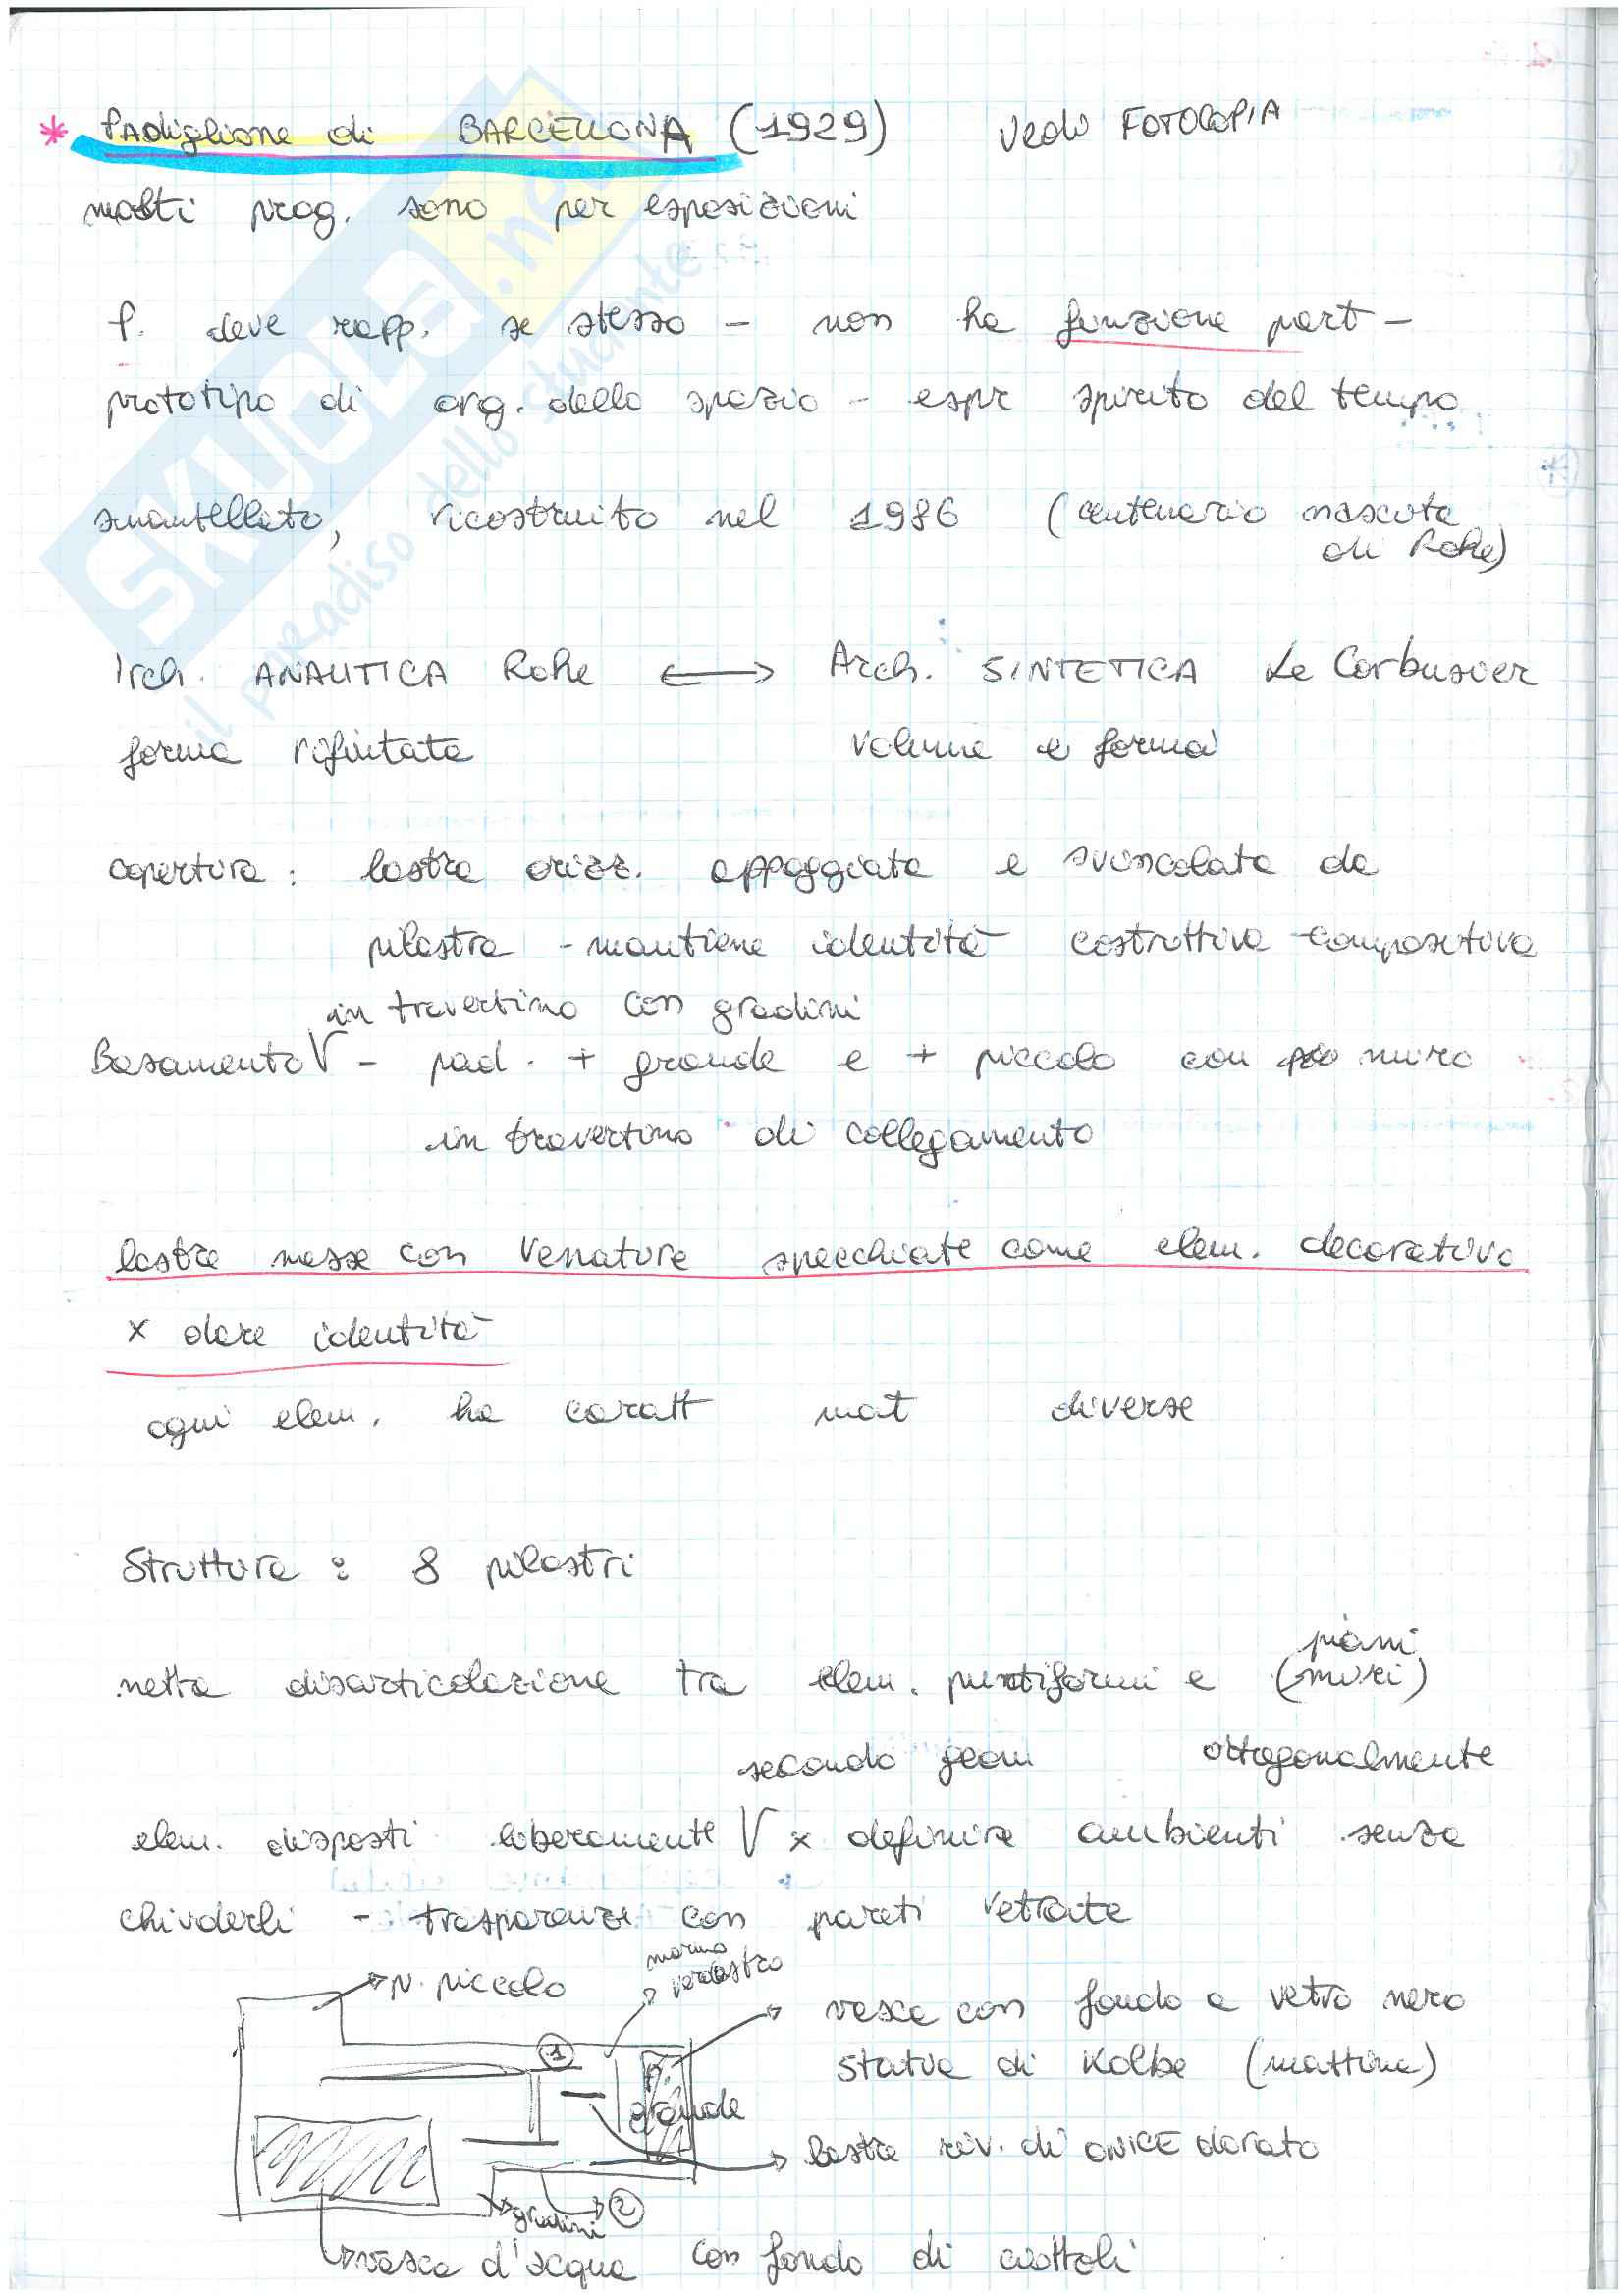 * PAdiglione di BARCELLONA (1929) vedi FOTOCOPIA
molti prog. sono per esposizioni
P. deve rapp. se stesso - non ha funzione part -
prototipo di org. dello spazio - espr spirito del tempo
smantellato, ricostruito nel 1986 (centenario nascita
di Rohe)
Arch. ANALITICA Rohe ⟷ Arch. SINTETICA Le Corbusier
forma rifiutata volume e forma
copertura: lastra orizz. appoggiata e svincolata da
pilastra - mantiene identità costruttiva - compositiva
in travertino con gradini
Basamento √ - pad. + grande e + piccolo con muro
in travertino di collegamento
lastre messe con venature specchiate come elem. decorativo
x dare identità
ogni elem. ha caratt mat diverse
Struttura: 8 pilastri
piani
netta disarticolazione tra elem. puntiformi e (muri)
secondo geom ortogonalmente
elem. disposti liberamente √ x definire ambienti senza
chiuderli - trasparenze con pareti vetrate
p. piccolo
marmo
verdastro
vasca con fondo a vetro nero
statua di Kolbe (mattina)
1
P.
grande
lastre riv. di ONICE dorato
gradini
2
vasca d'acqua con fondo di ciottoli
SKUOLA.net
il paradiso dello studente